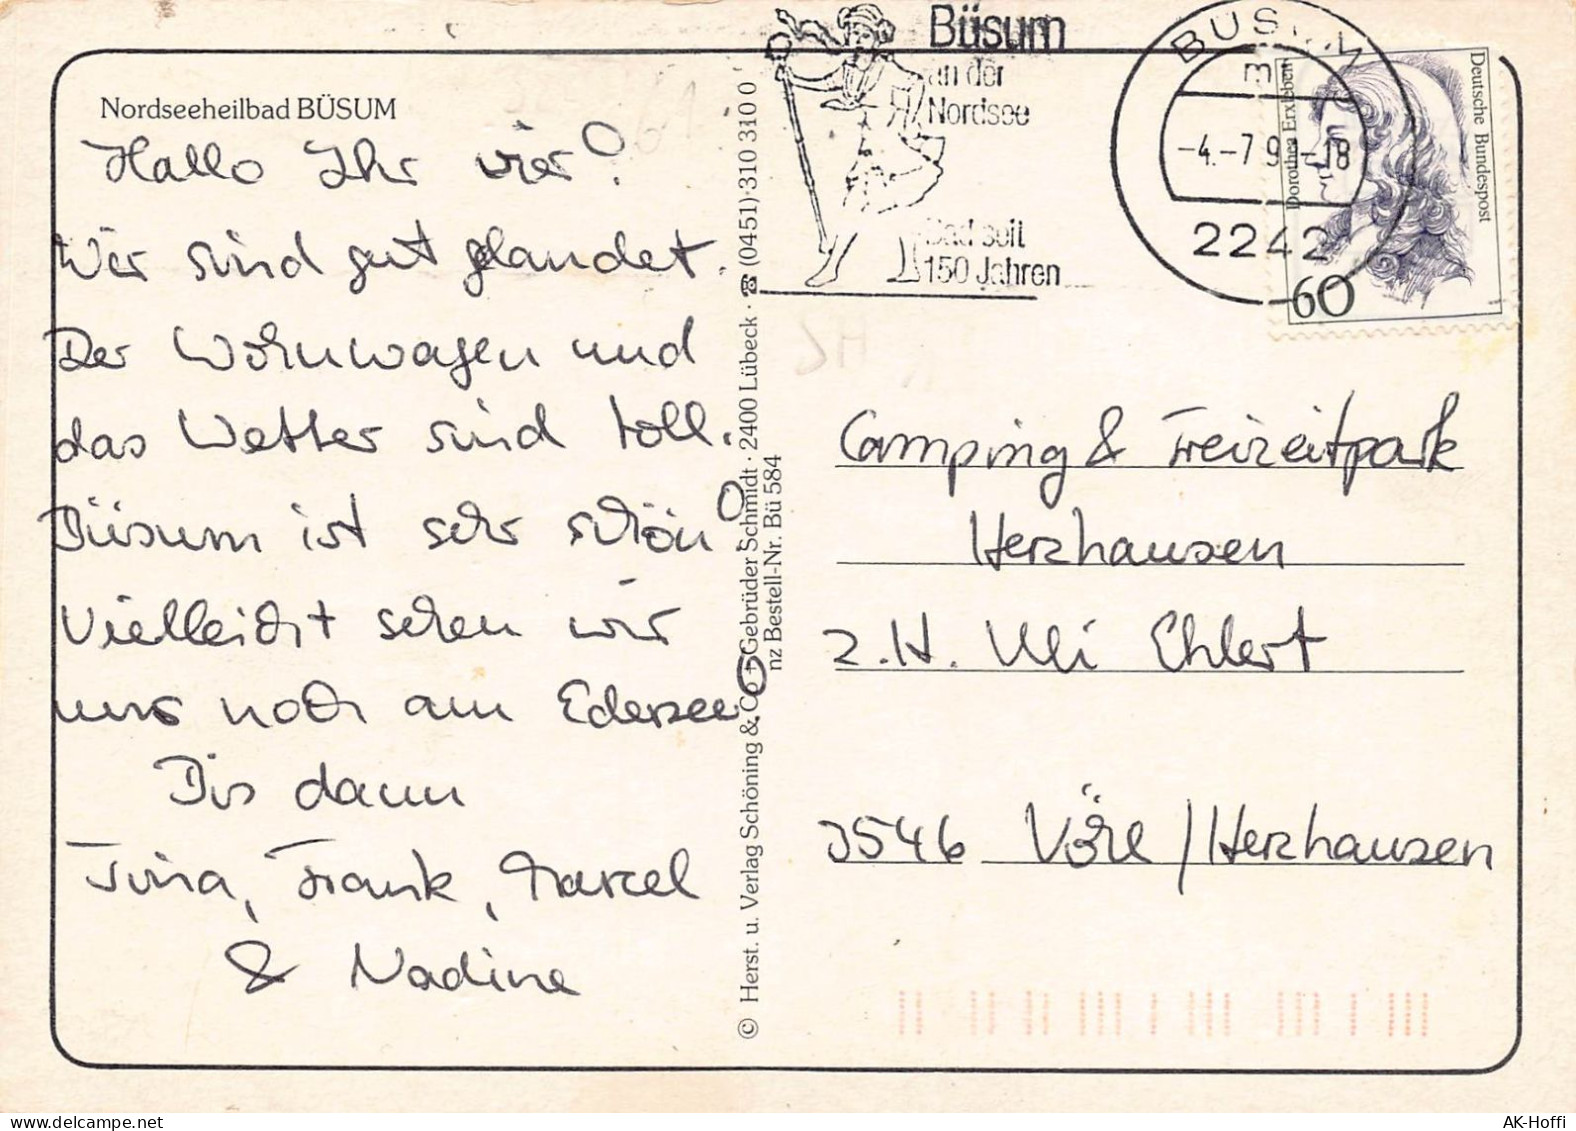 Nordseeheilbad BÜSUM
Hallo Ihr vier!
Wir sind gut gelandet.
Der Wohnwagen und
das Wetter sind toll.
Büsum ist sehr schön!
Vielleicht sehen wir
uns noch am Edersee!
Bis dann
Tina, Frank, Marcel
& Nadine
© Herst. u. Verlag Schöning & Co + Gebrüder Schmidt · 2400 Lübeck · ☎ (0451) 310 310 0
nz Bestell-Nr. Bü 584
Büsum
an der
Nordsee
Bad seit
150 Jahren
BÜSUM
m
-4.-7.9 -18
2242
Deutsche Bundespost
Dorothea Erxleben
60
Camping & Freizeitpark
Herzhausen
z.H. Uli Ehlert
3546 Vöhl / Herzhausen
AK-Hoffi